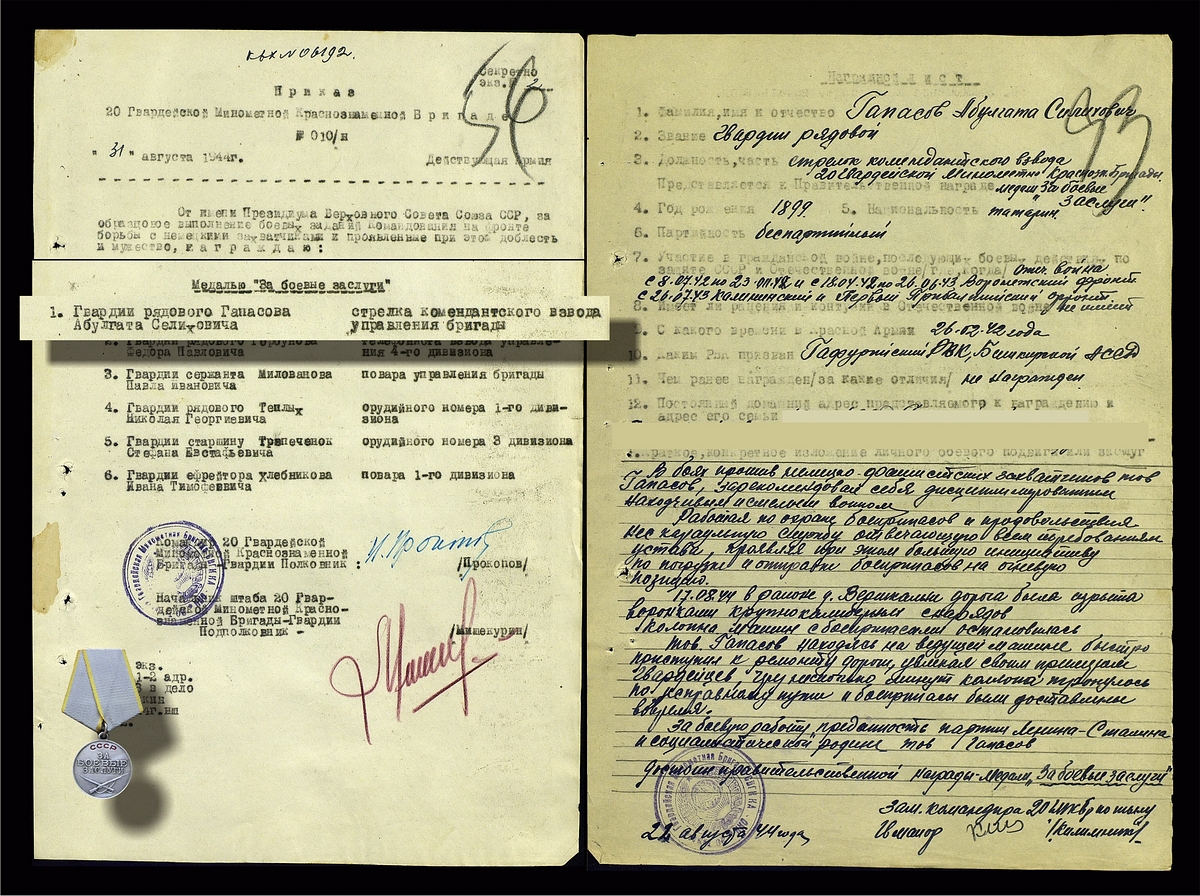 КВХ № 06192.
Секретно
экз. № 2
56
Приказ
20 Гвардейской Минометной Краснознаменной Бригаде
№ 010/н
"31" августа 1944г. Действующая Армия
От имени Президиума Верховного Совета Союза ССР, за
образцовое выполнение боевых заданий Командования на фронте
борьбы с немецкими захватчиками и проявленные при этом доблесть
и мужество, награждаю:
Медалью "За боевые заслуги"
1. Гвардии рядового Гапасова стрелка комендантского взвода
Абулгата Селиховича управления бригады
2. Гвардии рядового Горбунова телефониста взвода управле-
Федора Павловича ния 4-го дивизиона
3. Гвардии сержанта Милованова повара управления бригады
Павла Ивановича
4. Гвардии рядового Теплых орудийного номера 1-го диви-
Николая Георгиевича зиона
5. Гвардии старшину Трепеченок орудийного номера 3 дивизиона
Стефана Евстафьевича
6. Гвардии ефрейтора Хлебникова повара 1-го дивизиона
Ивана Тимофеевича
20 Гвардейской
Минометной Краснознаменной
Бригады-Гвардии Полковник : /Прокопов/
штаба 20 Гвар-
дейской Минометной Красно-
знаменной Бригады-Гвардии
Подполковник - /Мишекурин/
экз.
1-2 адр.
3 в дело
СССР
ЗА
БОЕВЫЕ
ЗАСЛУГИ
Наградной лист
53
1. Фамилия, имя и отчество Гапасов Абулгата Силихович
2. Звание Гвардии рядовой
3. Должность, часть стрелок комендантского взвода
20 Гвардейской Минометно Краснозн. Бригады.
Представляется к Правительственной награде медали "За боевые
заслуги".
4. Год рождения 1899 5. Национальность татарин
6. Партийность беспартийный
7. Участие в гражданской войне, последующих боевых действиях по
защите СССР и Отечественной войне/где, когда/ отеч. война
с 26.07.43 Калининский и Первый Прибалтийский фронт.
8. Имеет ли ранения и контузии в Отечественной войне не имеет
9. С какого времени в Красной Армии 26.02.42 года
10. Каким РВК призван Гафурийский РВК, Башкирской АССР
11. Чем ранее награжден/за какие отличия/ не награжден
12. Постоянный домашний адрес представляемого к награждению и
адрес его семьи
Краткое, конкретное изложение личного боевого подвига или заслуг
В боях против немецко-фашистских захватчиков тов
Гапасов, зарекомендовал себя дисциплинированным
находчивым и смелым воином.
Работая по охране боеприпасов и продовольствия
нес караульную службу отвечающую всем требованиям
устава, проявляя при этом большую инициативу
по погрузке и отправки боеприпасов на огневую
позицию.
17.08.44 в районе д. дорога была изрыта
воронками крупнокалиберных снарядов
Колонна машин с боеприпасами остановилась
Тов. Гапасов находясь на ведущей машине быстро
приступил к ремонту дороги, увлекая своим примером
Гвардейцев. Через несколько минут колонна тронулась
по исправному пути и боеприпасы были доставлены
вовремя.
За боевую работу, преданность партии Ленина-Сталина
и социалистической родине тов Гапасов
Достоин правительственной награды-Медали "За боевые заслуги"
Зам. командира 20 по тылу
Гв майор
22 августа 44 года